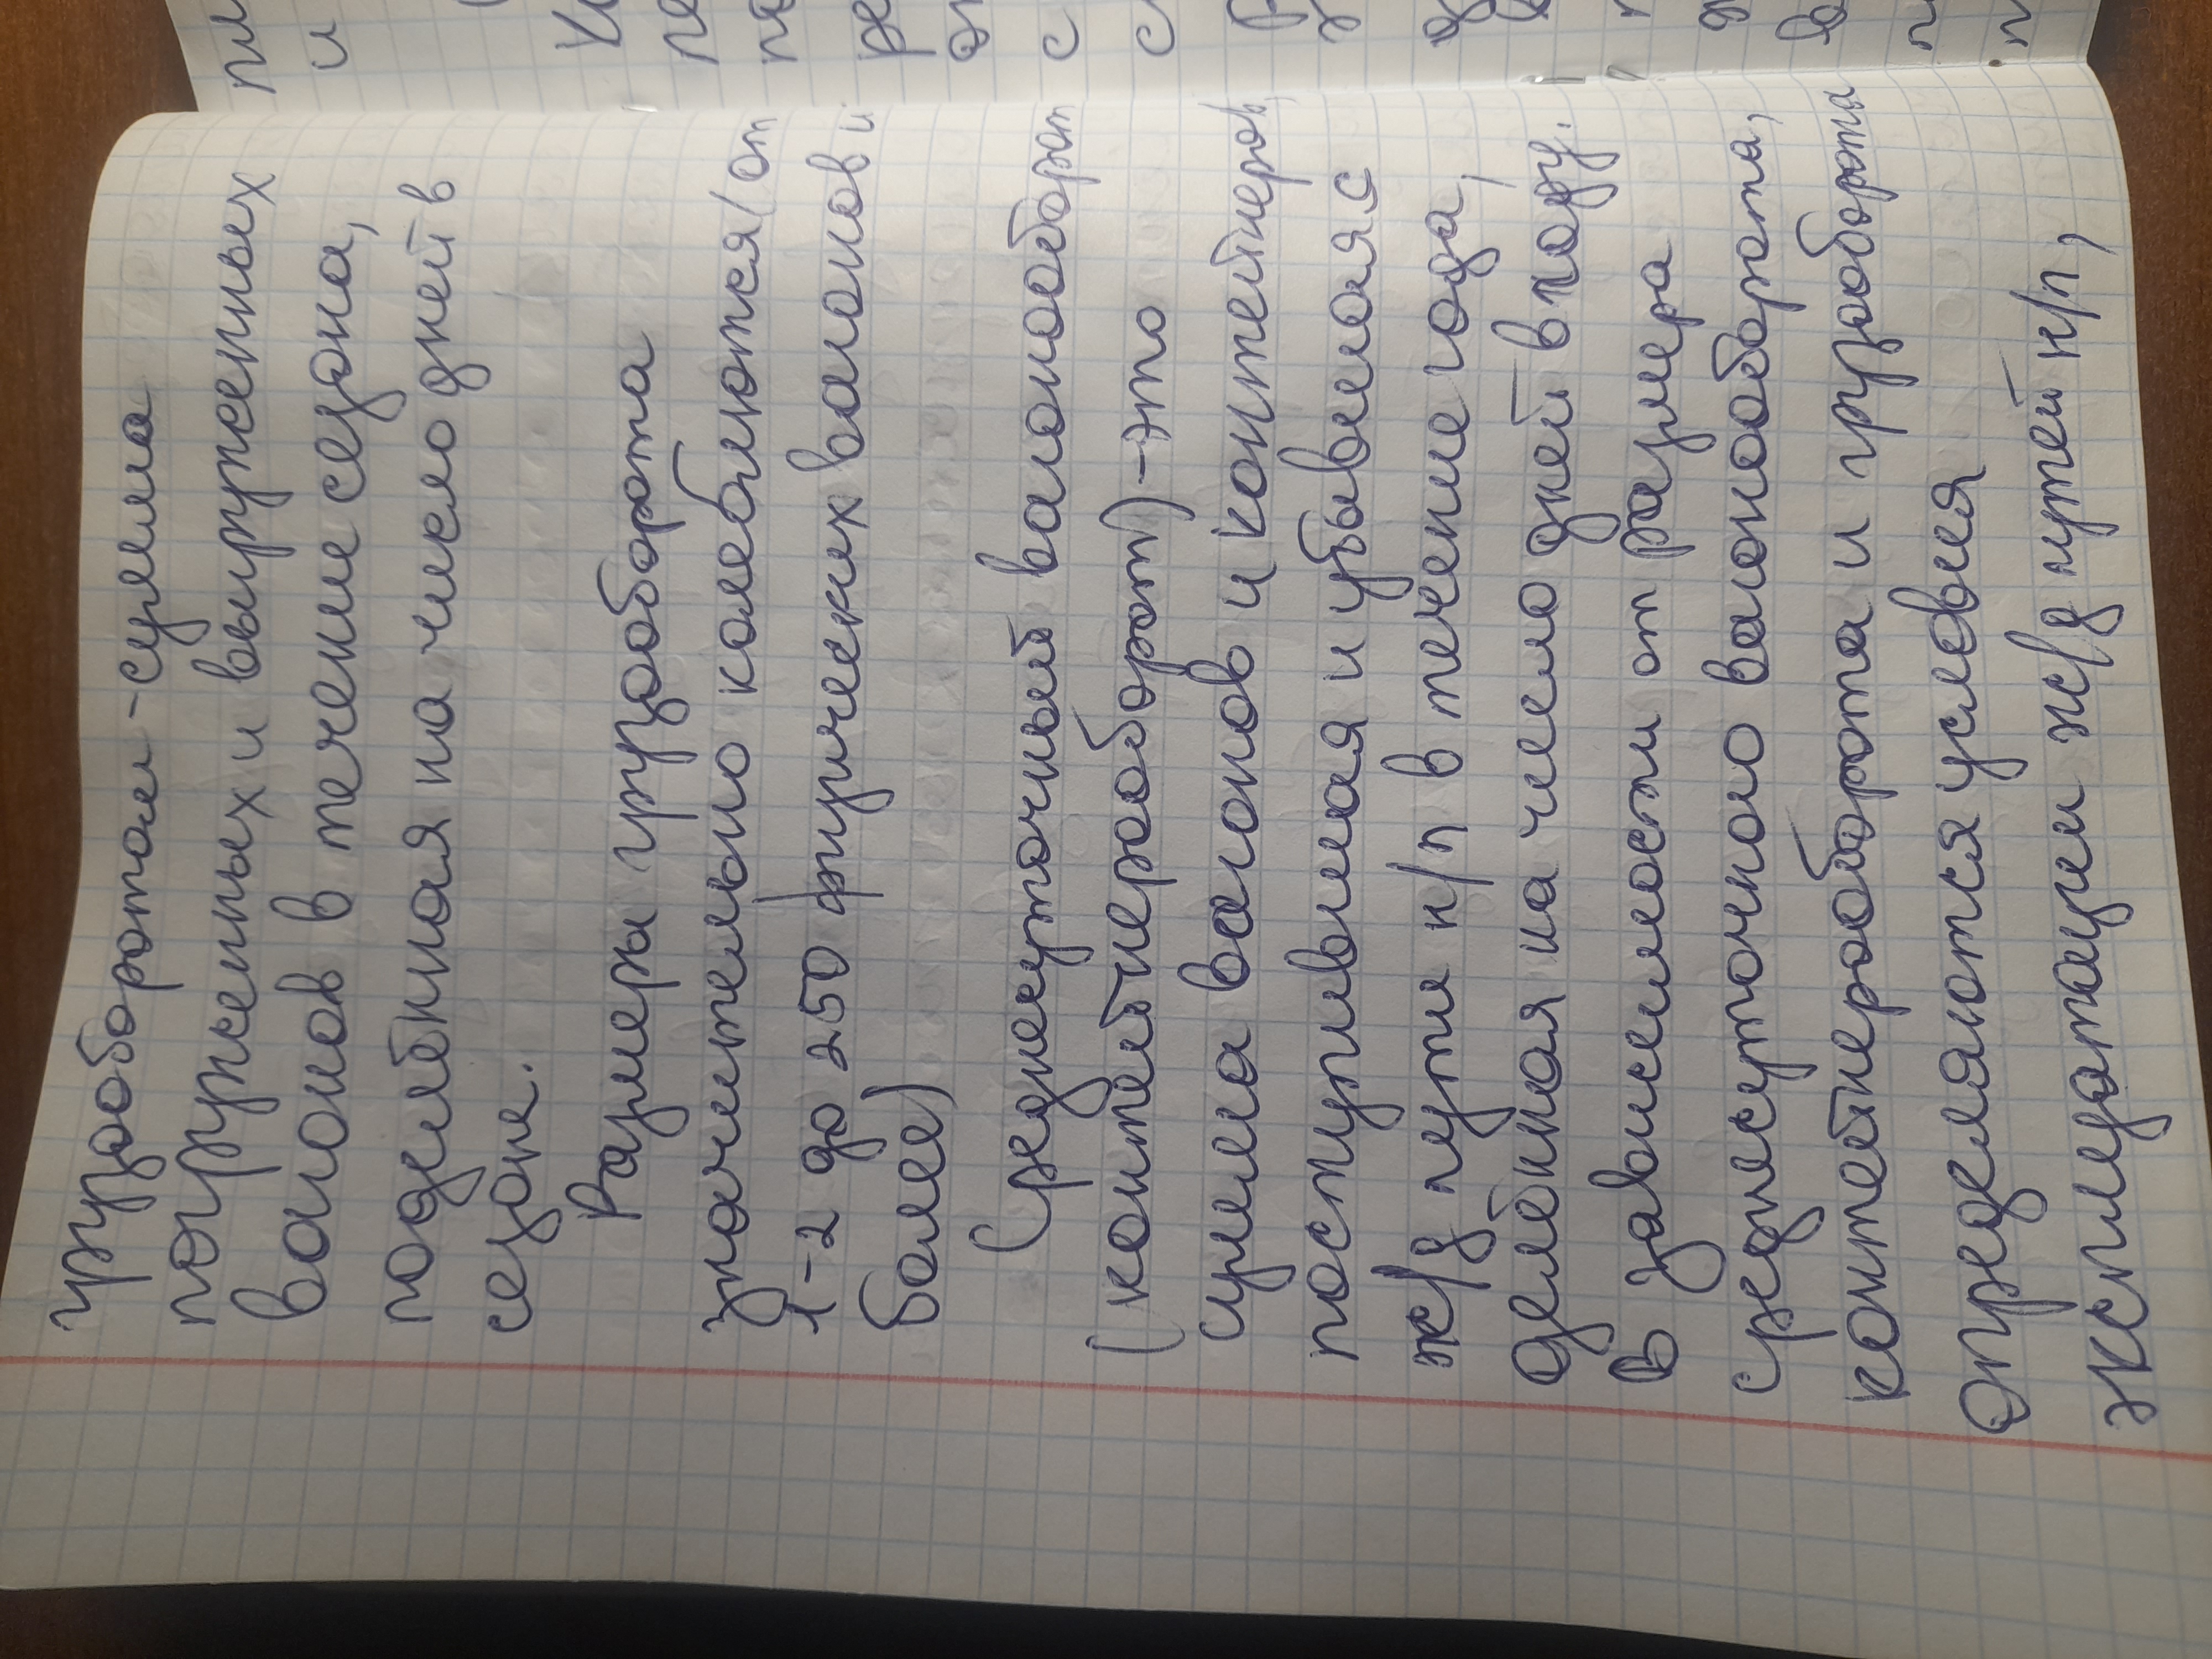 грузооборотом - сумма
погруженных и выгруженных
вагонов в течение сезона,
поделённая на число дней в
сезоне.
Размеры грузооборота
значительно колеблются (от
1-2 до 250 физических вагонов и
более)
Среднесуточный вагонооборот
(контейнерооборот) - это
сумма вагонов и контейнеров,
поступившая и убывшая с
ж/д пути н/п в течение года,
делённая на число дней в году.
В зависимости от размера
среднесуточного вагонооборота,
контейнерооборота и грузооборота
определяются условия
эксплуатации ж/д путей н/п,